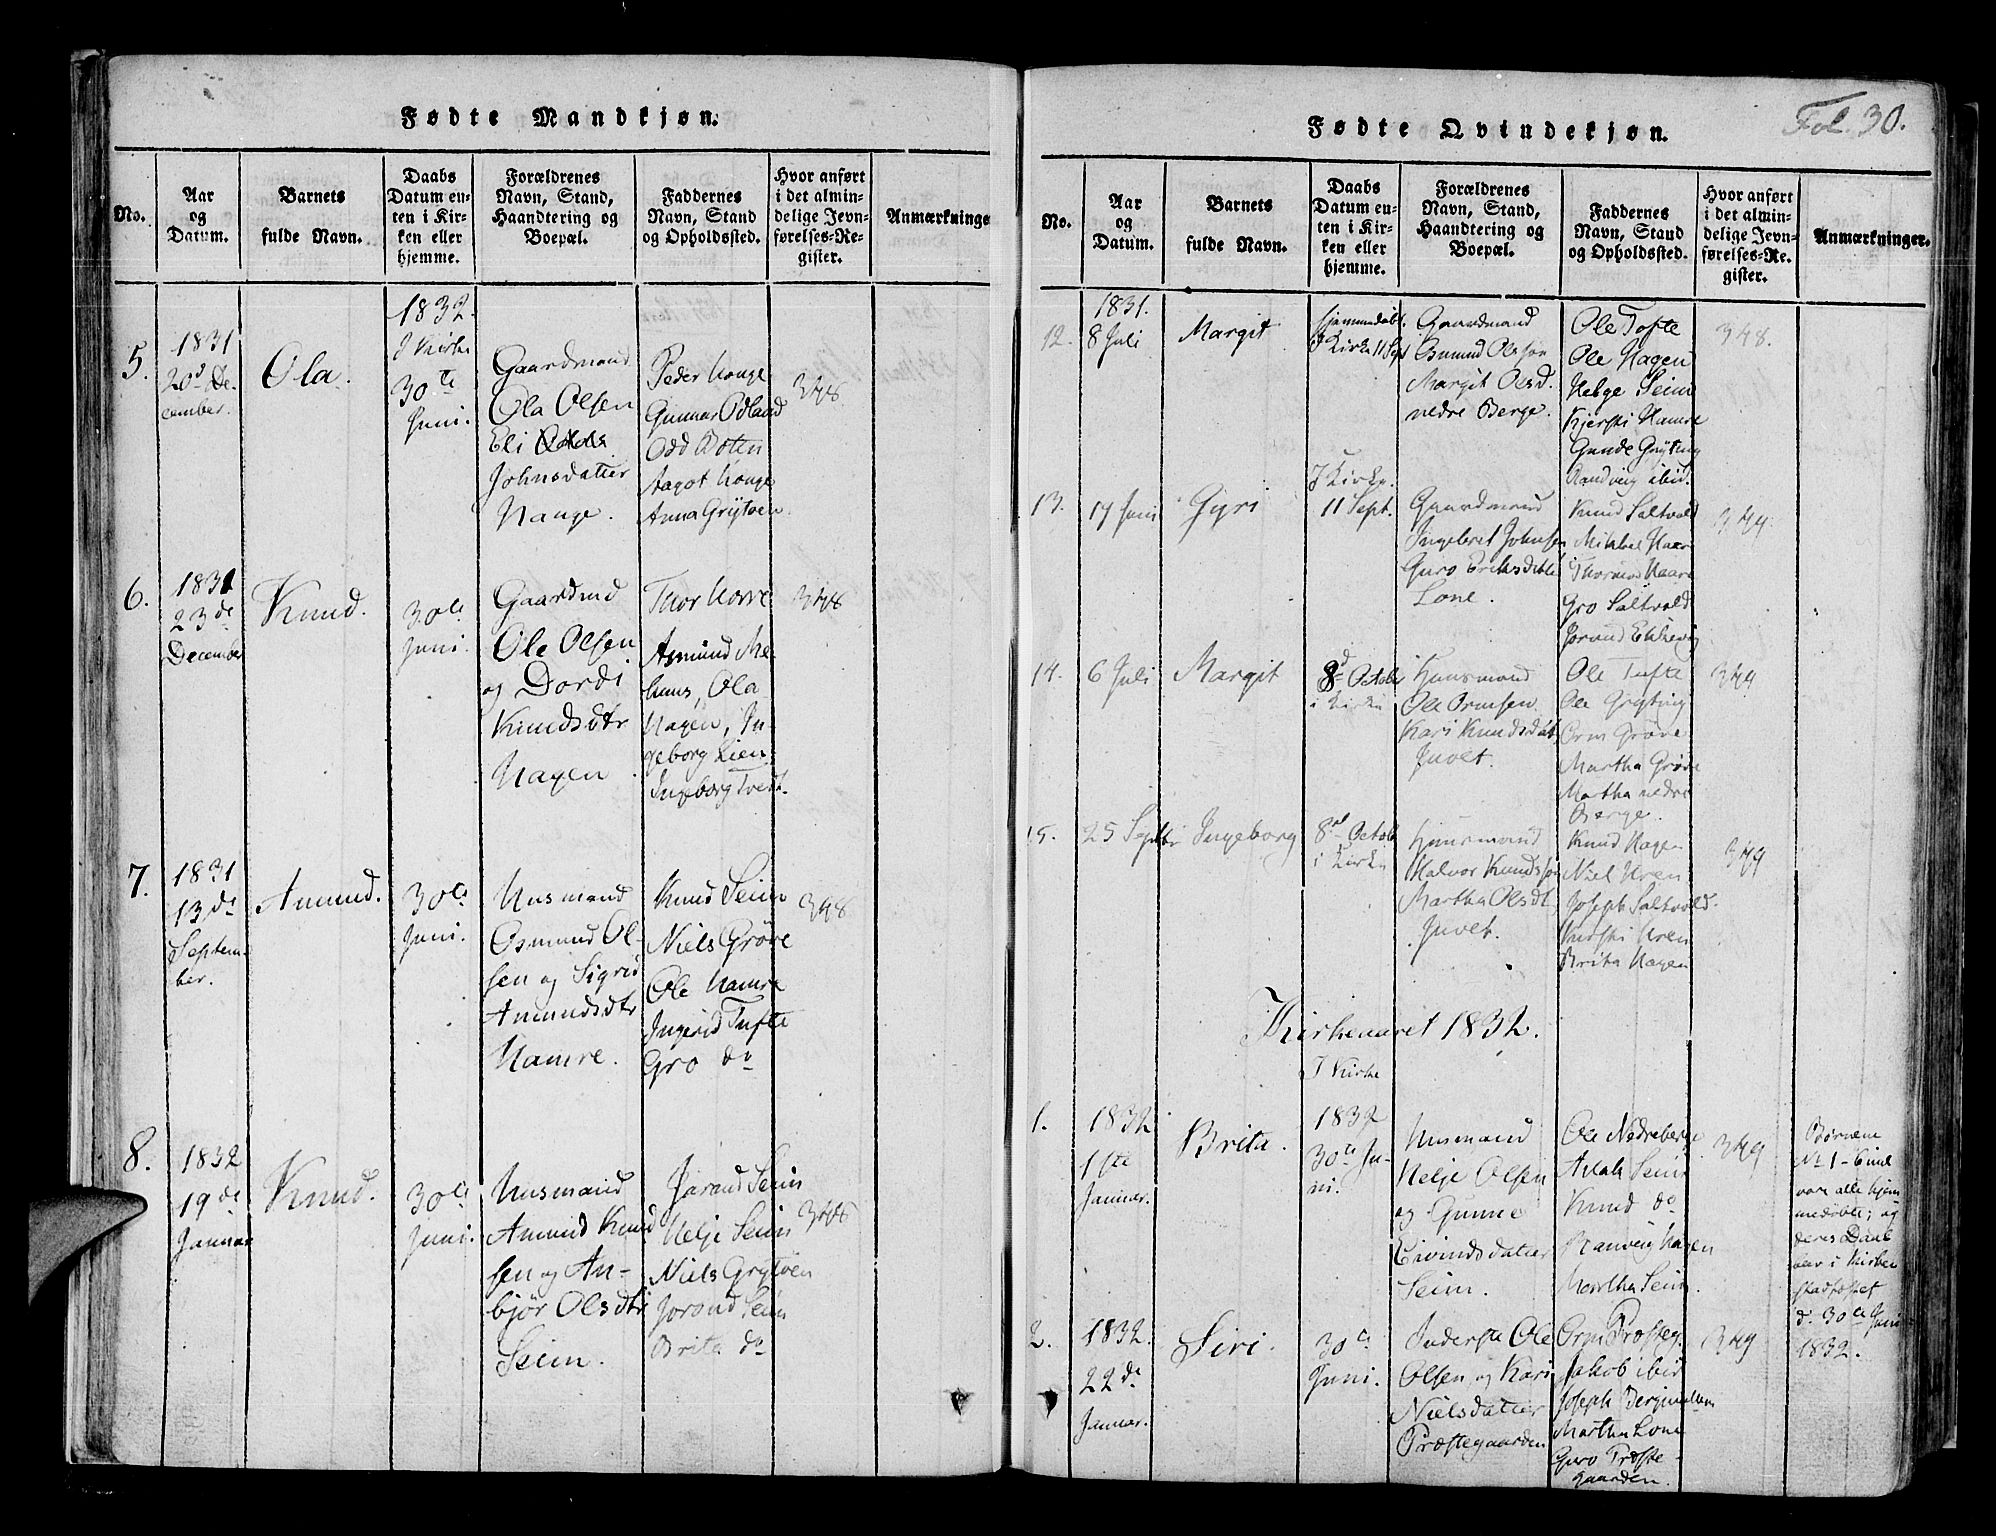 Fødte Mandkjøn.
No.
Aar
og
Datum.
Barnets
fulde Navn.
Daabs
Datum en-
ten i Kir-
ken eller
hjemme.
Forældrenes
Navn, Stand,
Haandtering og
Boepæl.
Faddernes
Navn, Stand
og Opholdssted.
Hvor anført
i det almin-
delige Jevn-
førelses-Re-
gister.
Anmærkninge
5.
1831
20d De-
cember.
Ola.
1832.
I Kirke
30te
Juni.
Gaardmand
Ola Olsen
Eli
Johnsdatter
Hauge.
Peder Hauge
Gunnar Odland
Odd Boten
Aagot Hauge
Anna Grytøen.
348
6.
1831
23de
December
Knud.
30te
Juni.
Gaardmd
Ole Olsen
og Dordi
Knudsdtr
Hagen.
Thor Horre
Asmund Me-
huus, Ola
Hagen, In-
geborg Lien
Ingeborg Tvedt.
348
7.
1831
13de
Septem-
ber.
Amund.
30te
Juni.
Husmand
Osmund Ol-
sen og Sigrid
Amundsdtr
Hamre.
Knud Seim
Niels Grøve
Ole Hamre
Ingerid Tufte
Gro do
348
8.
1832
19de
Januar
Knud.
30te
Juni.
Husmand
Amund Knud
sen og An-
bjør Olsdtr
Seim.
Jarand Seim
Helje Seim
Niels Grytøen
Jorand Seim
Brita do
348
Fol. 30.
Fødte Qvindekjøn.
No.
Aar
og
Datum.
Barnets
fulde Navn.
Daabs
Datum en-
ten i Kir-
ken eller
hjemme.
Forældrenes
Navn, Stand,
Haandtering og
Boepæl.
Faddernes
Navn, Stand
og Opholdssted.
Hvor anført
i det almin-
delige Jevn-
førelses-Re-
gister.
Anmærkninger.
12.
1831.
8 Juli
Margit
hjemmedøbt.
I Kirke 11 Sept
Gaardmand
Osmund Olsson
Margit Olsd.
nedre Berge.
Ole Tofte
Ole Hagen
Helge Seim
Kjersti Hamre
Gunde Grÿting
Randveig ibid.
348.
13.
17 Juni
Gyri
I Kirke.
11 Sept.
Gaardmand
Ingebret Johnsen
Guro Eriksdtr
Lone.
Knud Saltvold
Mikkel Haare
Thormod Haare
Gro Saltvold
Jorand Ekhevig
349.
14.
6 Juli
Margit
8d Octobr
i Kirke
Huusmand
Ole Ormsen
Kari Knudsdat.
Juvet.
Ole Tufte
Ole Gryting
Orm Grøve
Martha Grøve
Martha nedre
Berge.
349
15.
25 Septbr
Ingeborg
8d Octob
i Kirke
Huusmand
Halvor Knudsson
Martha Olsdt.
Juvet.
Knud Hagen
Niel Uren
Joseph Saltvold.
Kirsti Uren
Brita Hagen
349
Kirkeaaret 1832.
1.
1832
1ste
Januar.
Brita.
I Kirke
1832
30te Ju-
ni.
Husmand
Helje Olsen
og Gunne
Eivindsdatter
Seim.
Ole Nedreberge
Aslak Seim
Knud do
Ranveig Hagen
Martha Seim.
349
Børnene
No 1-6 incl
vare alle hjem
medøbte; og
deres Daab
blev i Kirken
stadfæstet
d. 30te Juni
1832.
2.
1832.
22de
Januar.
Siri.
30te
Juni.
Inderste Ole
Olsen og Kari
Nielsdatter
Præstegaarden
Orm Præsteg.
Jakob ibid
Joseph
Martha Lone
Guro Præste-
gaarden.
349